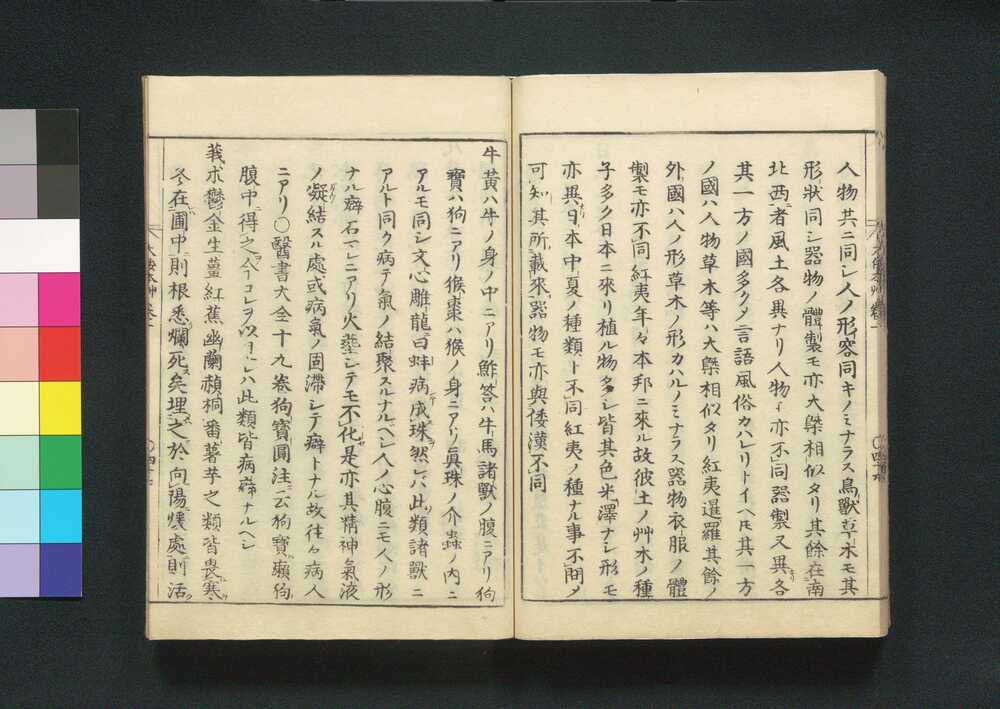 人物共ニ同シ人ノ形容同キノミナラス鳥獸草木モ其
形狀同シ器物ノ體製モ亦大槩相似タリ其餘在南
北西者風土各異ナリ人物亦不同器製又異各
其一方ノ國多ク言語風俗カハレリトイヘ𪜈其一方
ノ國ハ人物草木等ハ大槩相似タリ紅夷暹羅其餘ノ
外國ハ人ノ形草木ノ形カハルノミナラス器物衣服ノ體
製モ亦不同紅夷年々本邦ニ來ル故彼土ノ艸木ノ種
子多ク日本ニ來リ植ル物多シ皆其色米澤ナシ形モ
亦異日本中夏ノ種類ト不同紅夷ノ種ナル事不問〆
可知其所載來器物モ亦與倭漢不同
牛黃ハ牛ノ身ノ中ニアリ鮓荅ハ牛馬諸獸ノ腹ニアリ狗
寶ハ狗ニアリ猴棗ハ猴ノ身ニアリ眞珠ノ介蟲ノ内ニ
アルモ同シ文心雕龍曰蚌病成珠然レハ此類諸獸ニ
アルト同ク病テ氣ノ結聚スルナルヘシ人ノ心腹ニモ人ノ形
ナル癖石マレニアリ火葬シテモ不化是亦其精神氣液
ノ凝結スル處或病氣ノ固滯シテ癖トナル故往々病人
ニアリ〇醫書大全十九卷狗寶圓注ニ云狗寶癩狗
腹中得之今コレヲ以ミレハ此類皆病癖ナルヘシ
莪朮鬱金生薑紅蕉幽蘭頳桐番薯芋之類皆畏寒
冬在圃中則根悉爛死矣埋之於向陽煖處則活